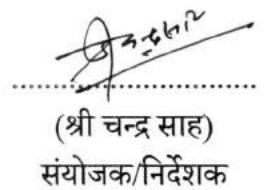 (श्री चन्द्र साह)
संयोजक/निर्देशक